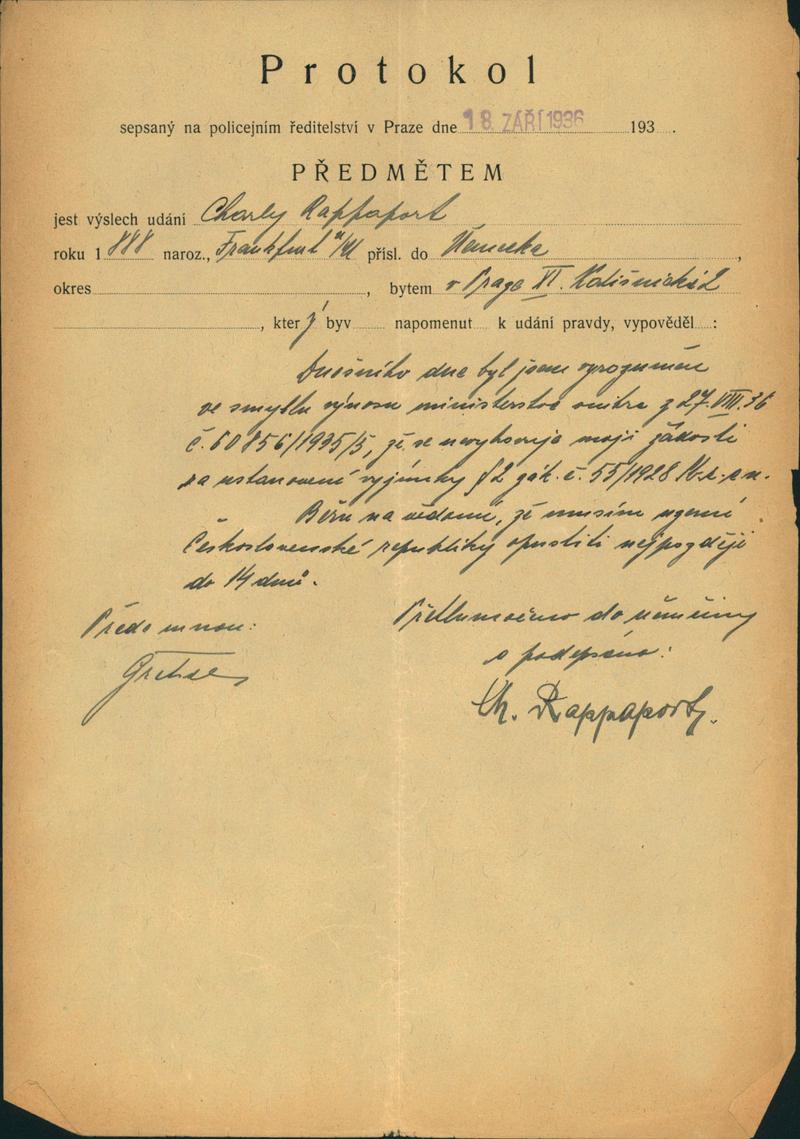 Protokol
sepsaný na policejním ředitelství v Praze dne 18. ZÁŘÍ 1936 193 .
PŘEDMĚTEM
jest výslech udání Charly Rappaport
roku 1888 naroz., Frankfurt n/M přísl. do Německa ,
okres , bytem v Praze XI.
, který byv napomenut k udání pravdy, vypověděl :
Dnešního dne byl jsem vyrozuměn
ve smyslu výnosu ministerstva vnitra z 27.VIII.36
č. 60856/1935/5, že se nevyhovuje mojí žádosti
za ustanovení výjimky § 2 zák. č. 55/1928
Beru na vědomí, že musím území
Československé republiky opustiti nejpozději
do 14 dnů.
Přede mnou:
Přetlumočeno do němčiny
a podepsáno:
Ch. Rappaport.